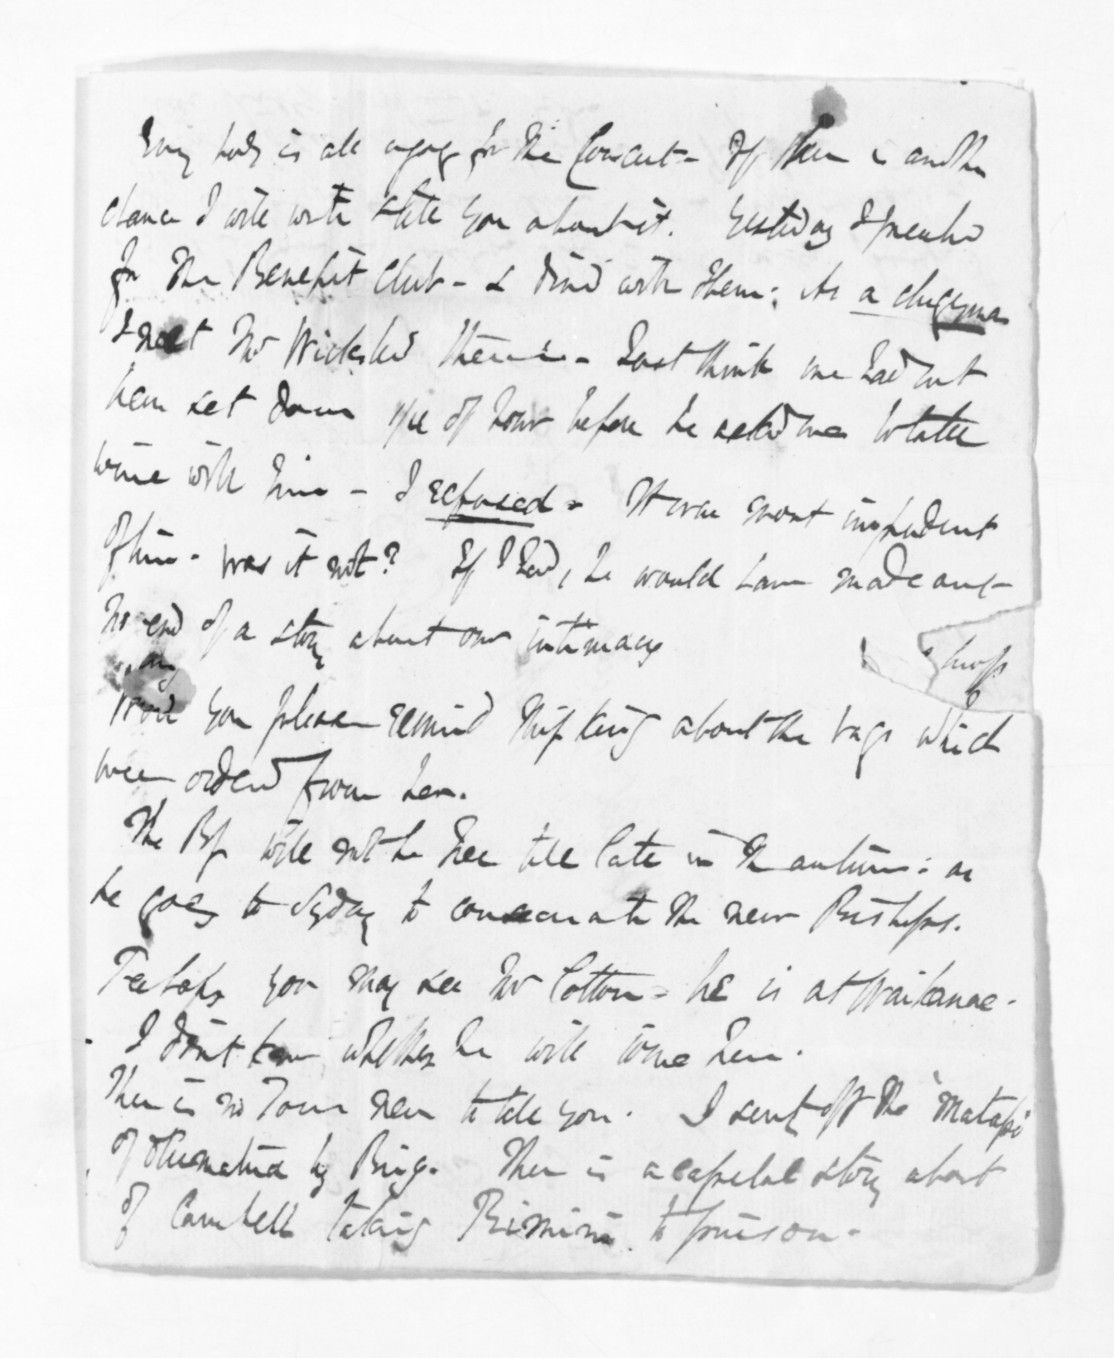 Every body is all agog for the Concert - If there is another
chance I will write & tell you about it. Yesterday I preached
for the Benefit Club - & dined with them: As a clergyman
I met Mr there - Just think we had not
been set down 1/4 of hour before he asked me to take
wine with him - I refused - It was most impudent
of him - was it not? If I had, he would have made out
no end of a story about our intimacy
any
Would you please remind Miss King about the bags which
were ordered from her.
The Bp will not be here till late in the autumn: as
he goes to Sydney to consecrate the new Bishops.
Perhaps you may see Mr Cotton - he is at Waikanae -
I don't know whether he will come here.
There is no Town news to tell you. I sent off the
of by Brig. There is a capital story about
of Campbell taking to prison -